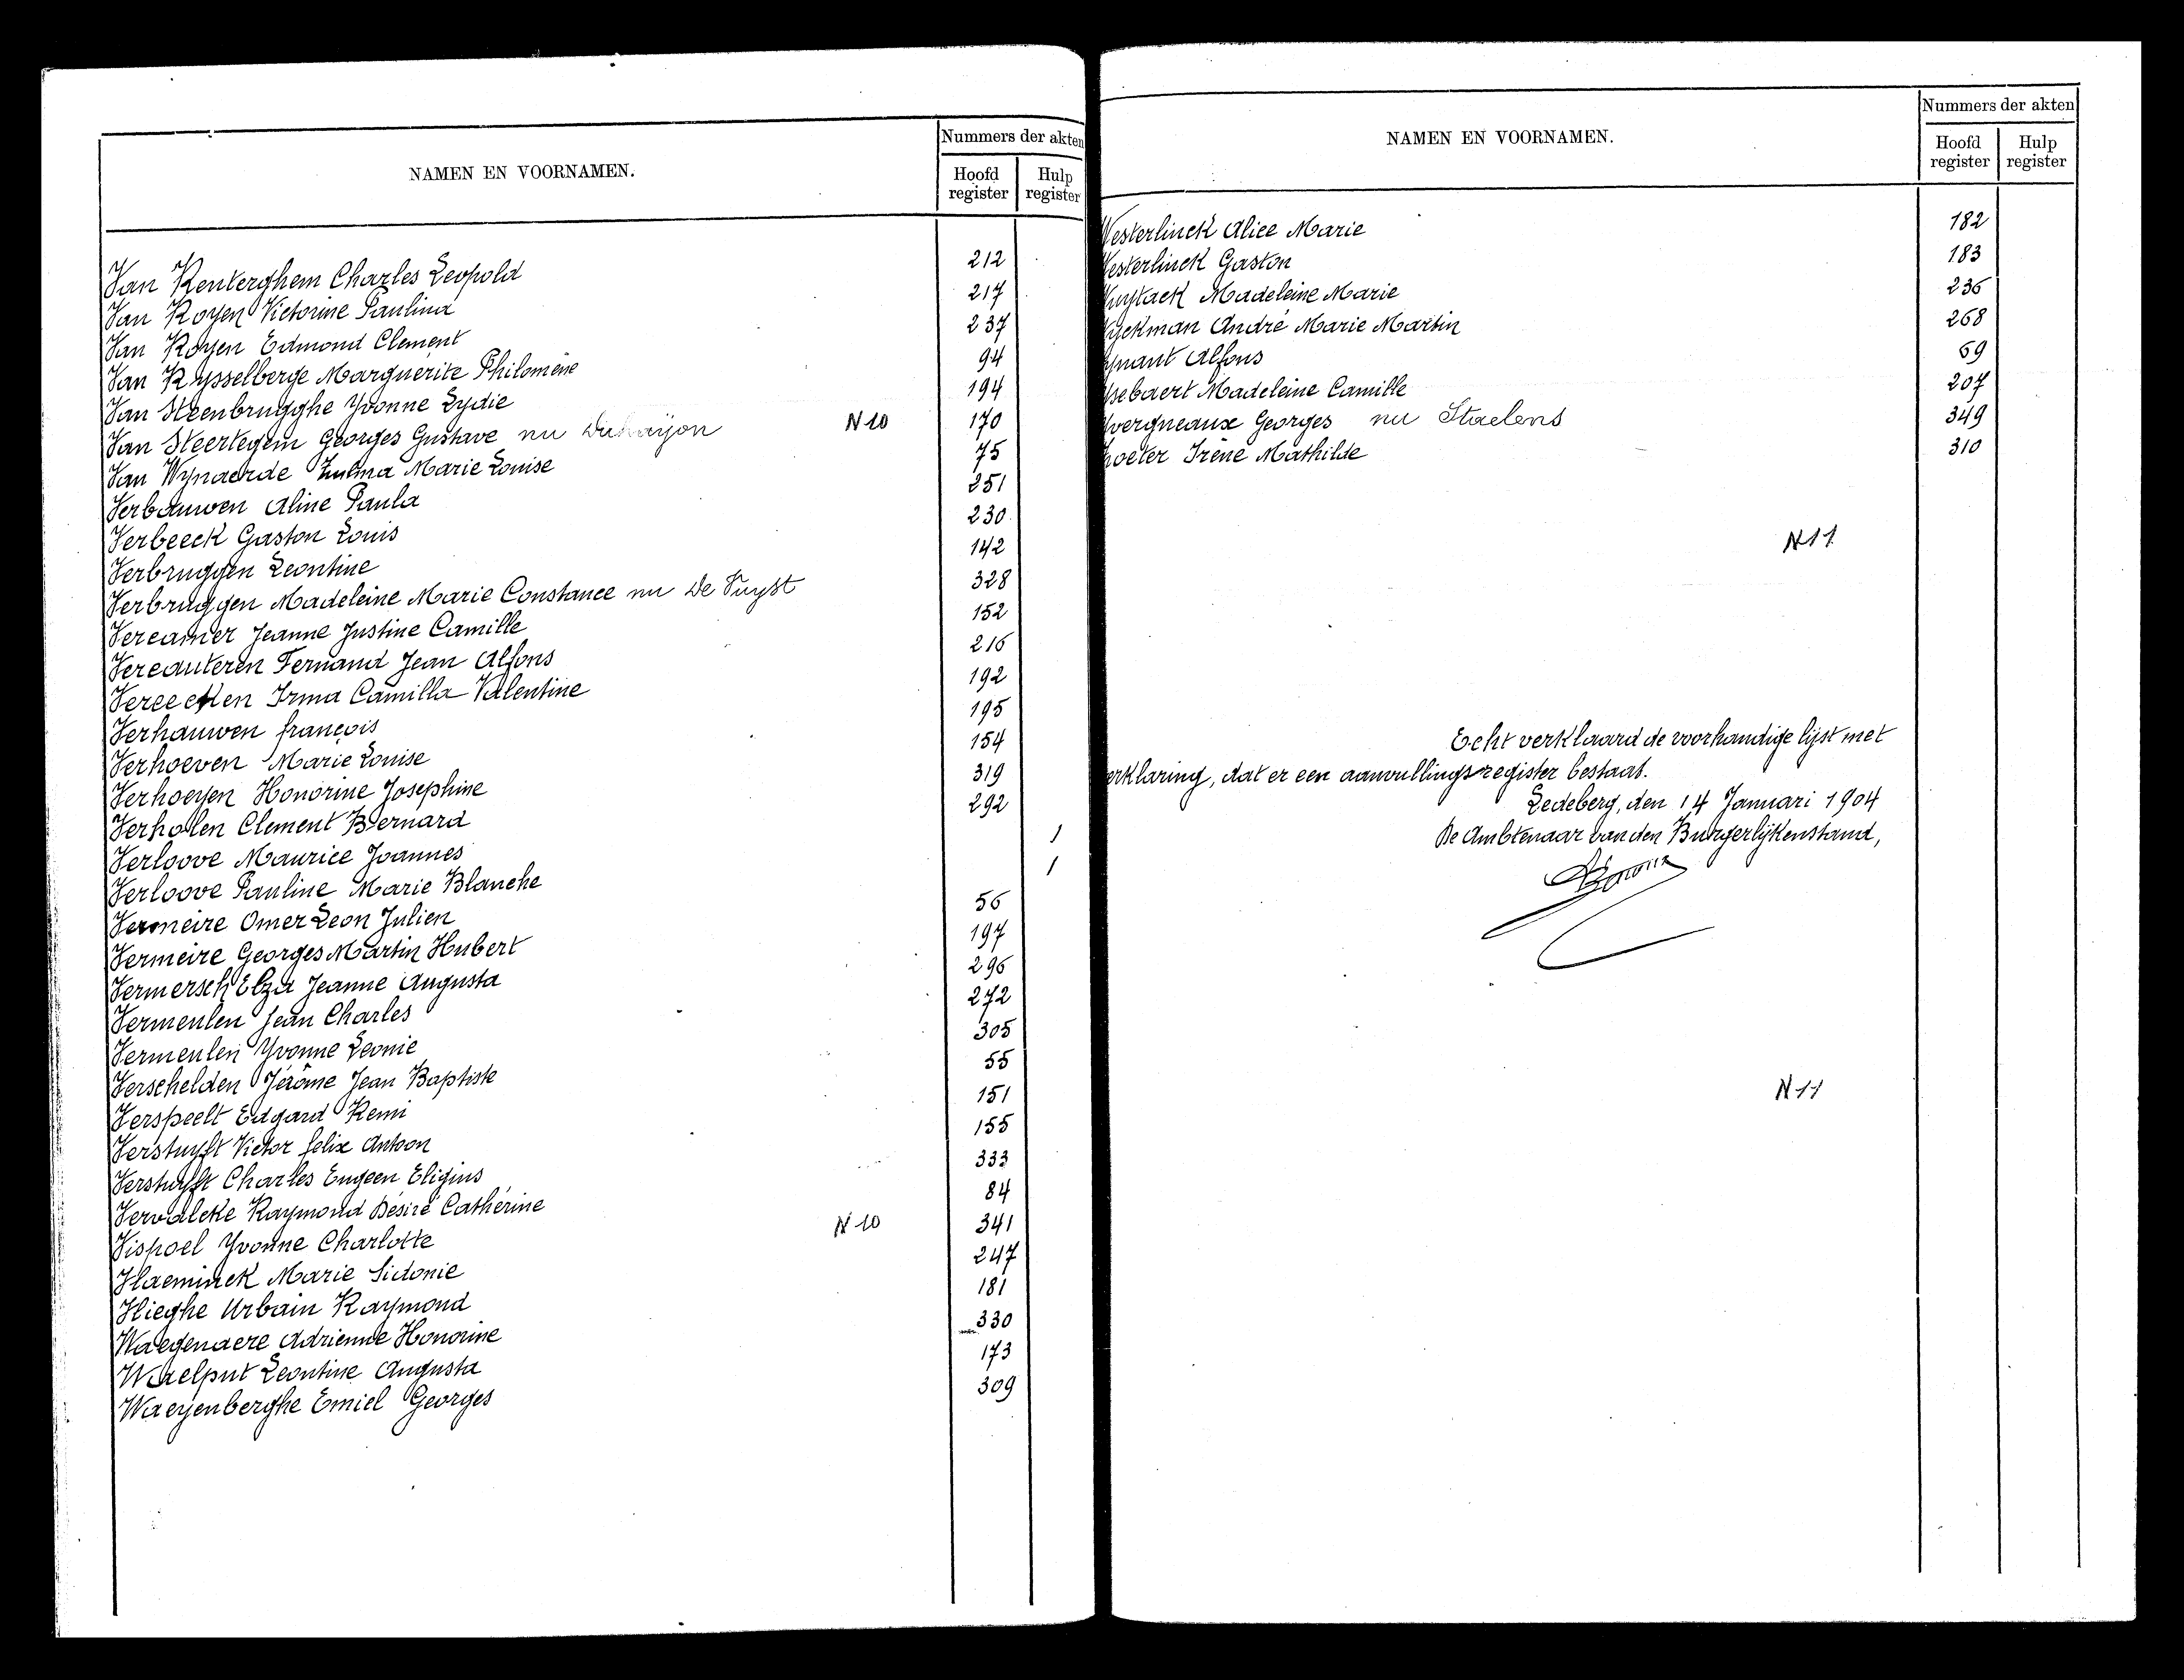 NAMEN EN VOORNAMEN.
Nummers der akten
Hoofd register
Hulp register
Van Renterghem Charles Leopold 212
Van Royen Victorine Paulina 217
Van Royen Edmond Clement 237
Van Rysselberge Marguerite Philomène 94
Van Steenbrugghe Yvonne Lydie 194
Van Steertegem Georges Gustave nu N10 170
Van Wynaerde Zulma Marie Louise 75
Verbauwen Aline Paula 251
Verbeeck Gaston Louis 230
Verbruggen Leontine 142
Verbruggen Madeleine Marie Constance nu De Puyst 328
Vercamer Jeanne Justine Camille 152
Vercauteren Fernand Jean Alfons 216
Vereecken Irma Camilla Valentine 192
Verhauwen françois 195
Verhoeven Marie Louise 154
Verhoeyen Honorine Josephine 319
Verholen Clement Bernard 292
Verloove Maurice Joannes 1
Verloove Pauline Marie Blanche 1
Vermeire Omer Leon Julien 56
Vermeire Georges Martin Hubert 197
Vermersch Elza Jeanne Augusta 296
Vermeulen Jean Charles 272
Vermeulen Yvonne Leonie 305
Verschelden Jérôme Jean Baptiste 55
Verspeelt Edgard Remi 151
Verstuyft Victor felix Antoon 155
Verstuyft Charles Eugeen Eligius 333
Vervalcke Raymond Désiré Cathérine 84
Vispoel Yvonne Charlotte N10 341
Vlaeminck Marie Sidonie 247
Vlieghe Urbain Raymond 181
Waegenaere Adrienne Honorine 330
Waelput Leontine Augusta 173
Waeyenberghe Emiel Georges 309
NAMEN EN VOORNAMEN.
Nummers der akten
Hoofd register
Hulp register
Westerlinck Alice Marie 182
Westerlinck Gaston 183
Wuytack Madeleine Marie 236
Wyckman André Marie Martin 268
ynant Alfons 69
ysebaert Madeleine Camille 207
vergneaux Georges nu Staelens 349
oeter Irène Mathilde 310
N11
Echt verklaard de voorhandige lijst met
erklaring, dat er een aanvullingsregister bestaat.
Ledeberg, den 14 Januari 1904
De Ambtenaar van den Burgerlijkenstand,
N11